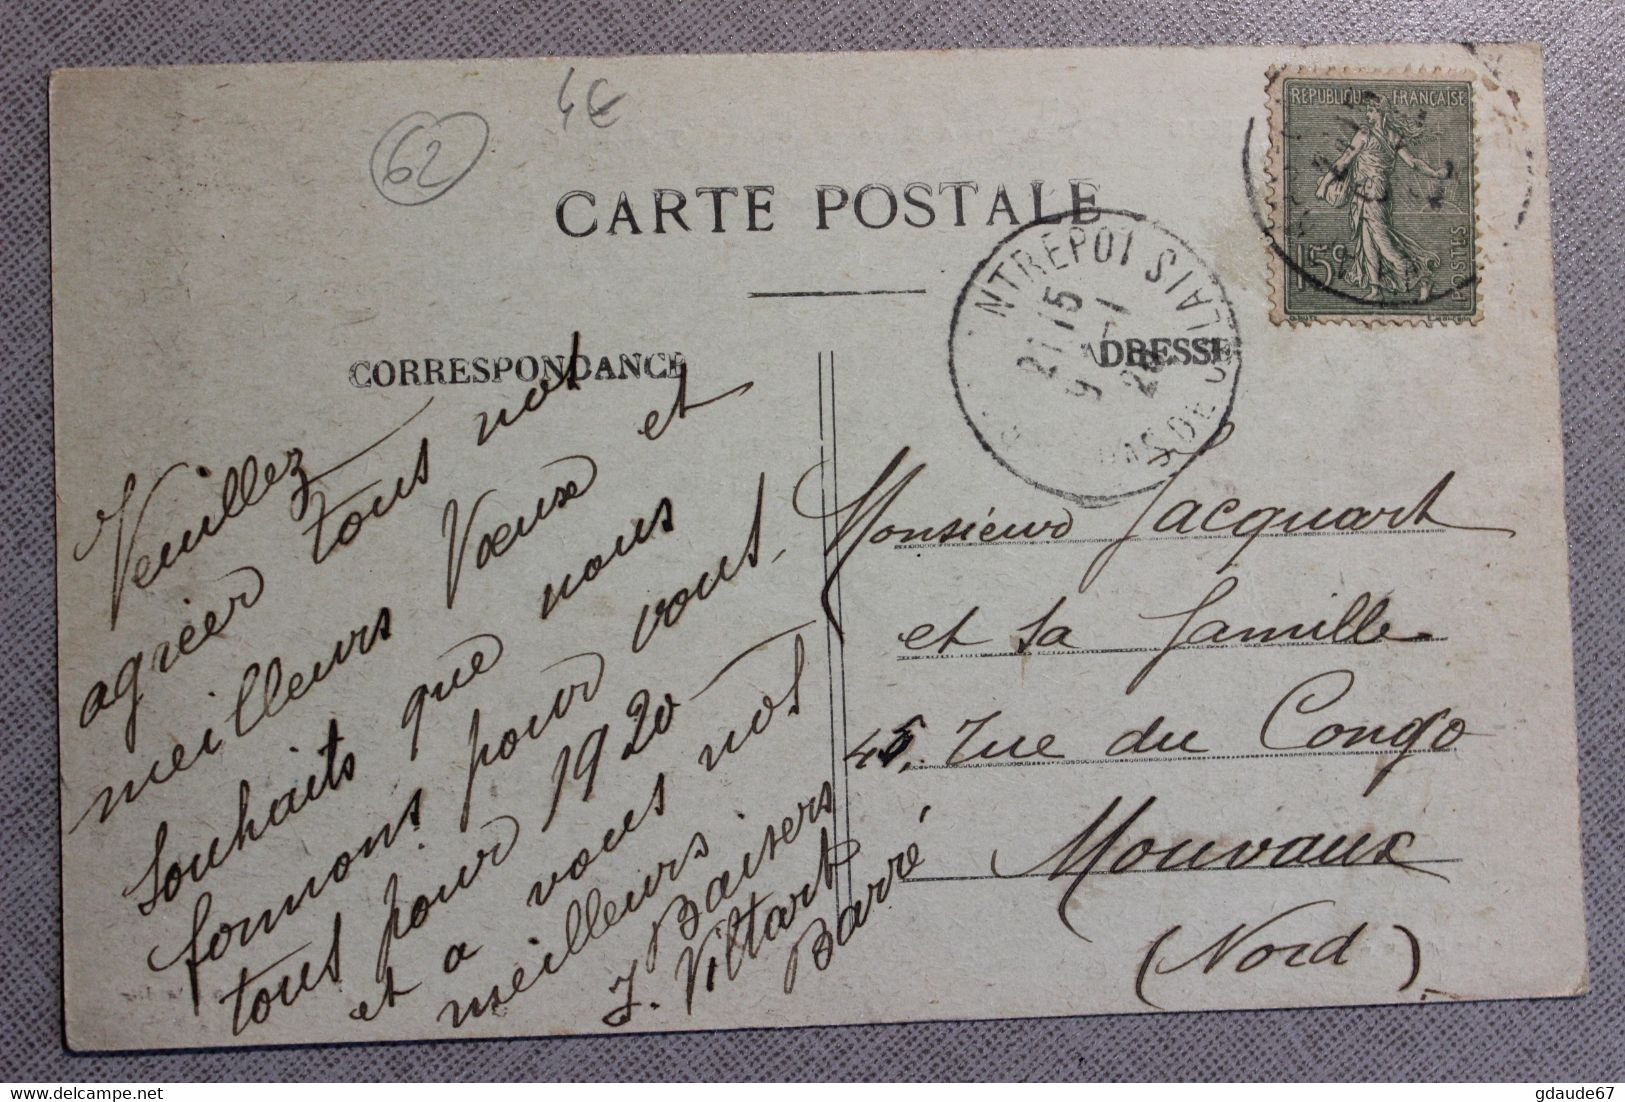 62
4€
CARTE POSTALE
CORRESPONDANCE
ADRESSE
REPUBLIQUE FRANÇAISE
15c
POSTES
NTREPOT
21 15
9 - 1
20
PAS DE CALAIS
Veuillez
agréer tous nos
meilleurs Vœux et
souhaits que nous
formons pour vous,
tous pour 1920
et a vous nos
meilleurs Baisers
J. Viltart
Barré
Monsieur Jacquart
et sa famille
45, rue du Congo
Mouvaux
(Nord)
gdaude67